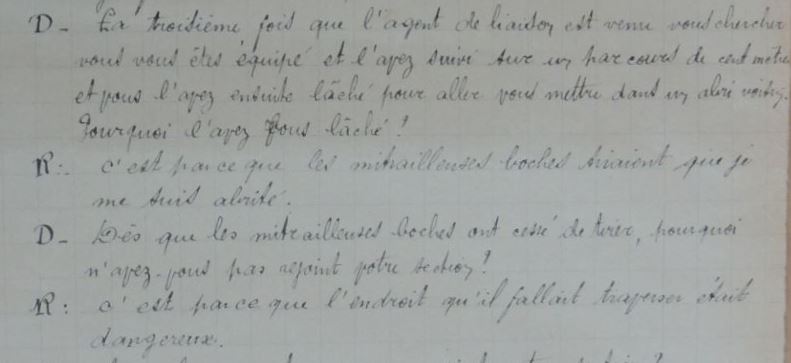 D - La troisième fois que l'agent de liaison est venu vous chercher
vous vous êtes équipé et l'avez suivi sur un parcours de cent mètres
et vous l'avez ensuite lâché pour aller vous mettre dans un abri voisin.
Pourquoi l'avez vous lâché ?
R : c'est parce que les mitrailleuses boches tiraient que je
me suis abrité.
D - Dès que les mitrailleuses boches ont cessé de tirer, pourquoi
n'avez-vous pas rejoint votre section ?
R : c'est parce que l'endroit qu'il fallait traverser était
dangereux.